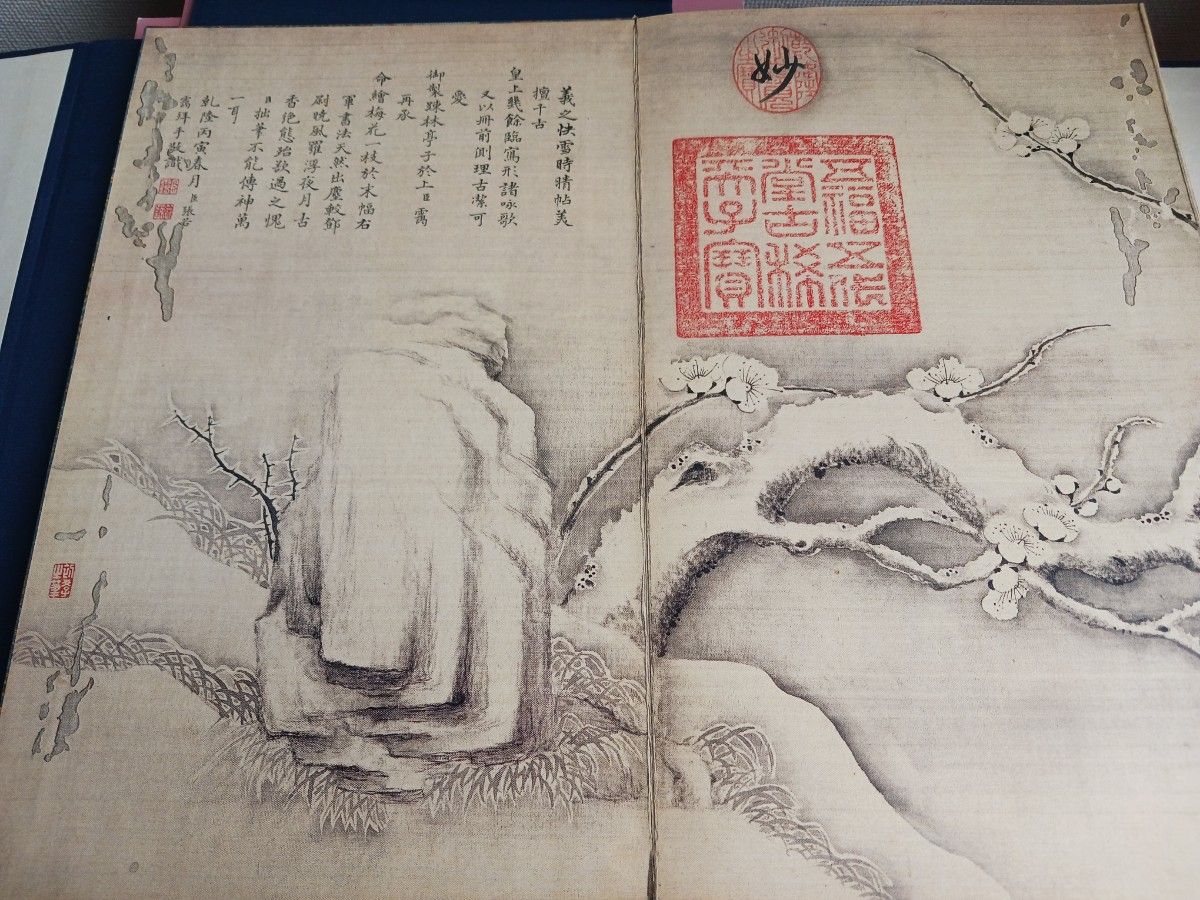 妙
五福五代
堂古稀
天子寶
羲之快雪時晴帖美
擅千古
皇上幾餘臨寫形諸咏歌
又以冊前側理古潔可
愛
御製疎林亭子於上臣靄
再承
命繪梅花一枝於末幅右
軍書法天然出塵較鄧
尉晚風羅浮夜月古
香絕態殆欲過之愧
臣拙筆不能傳神萬
一耳
乾隆丙寅春月臣張若
靄拜手敬識